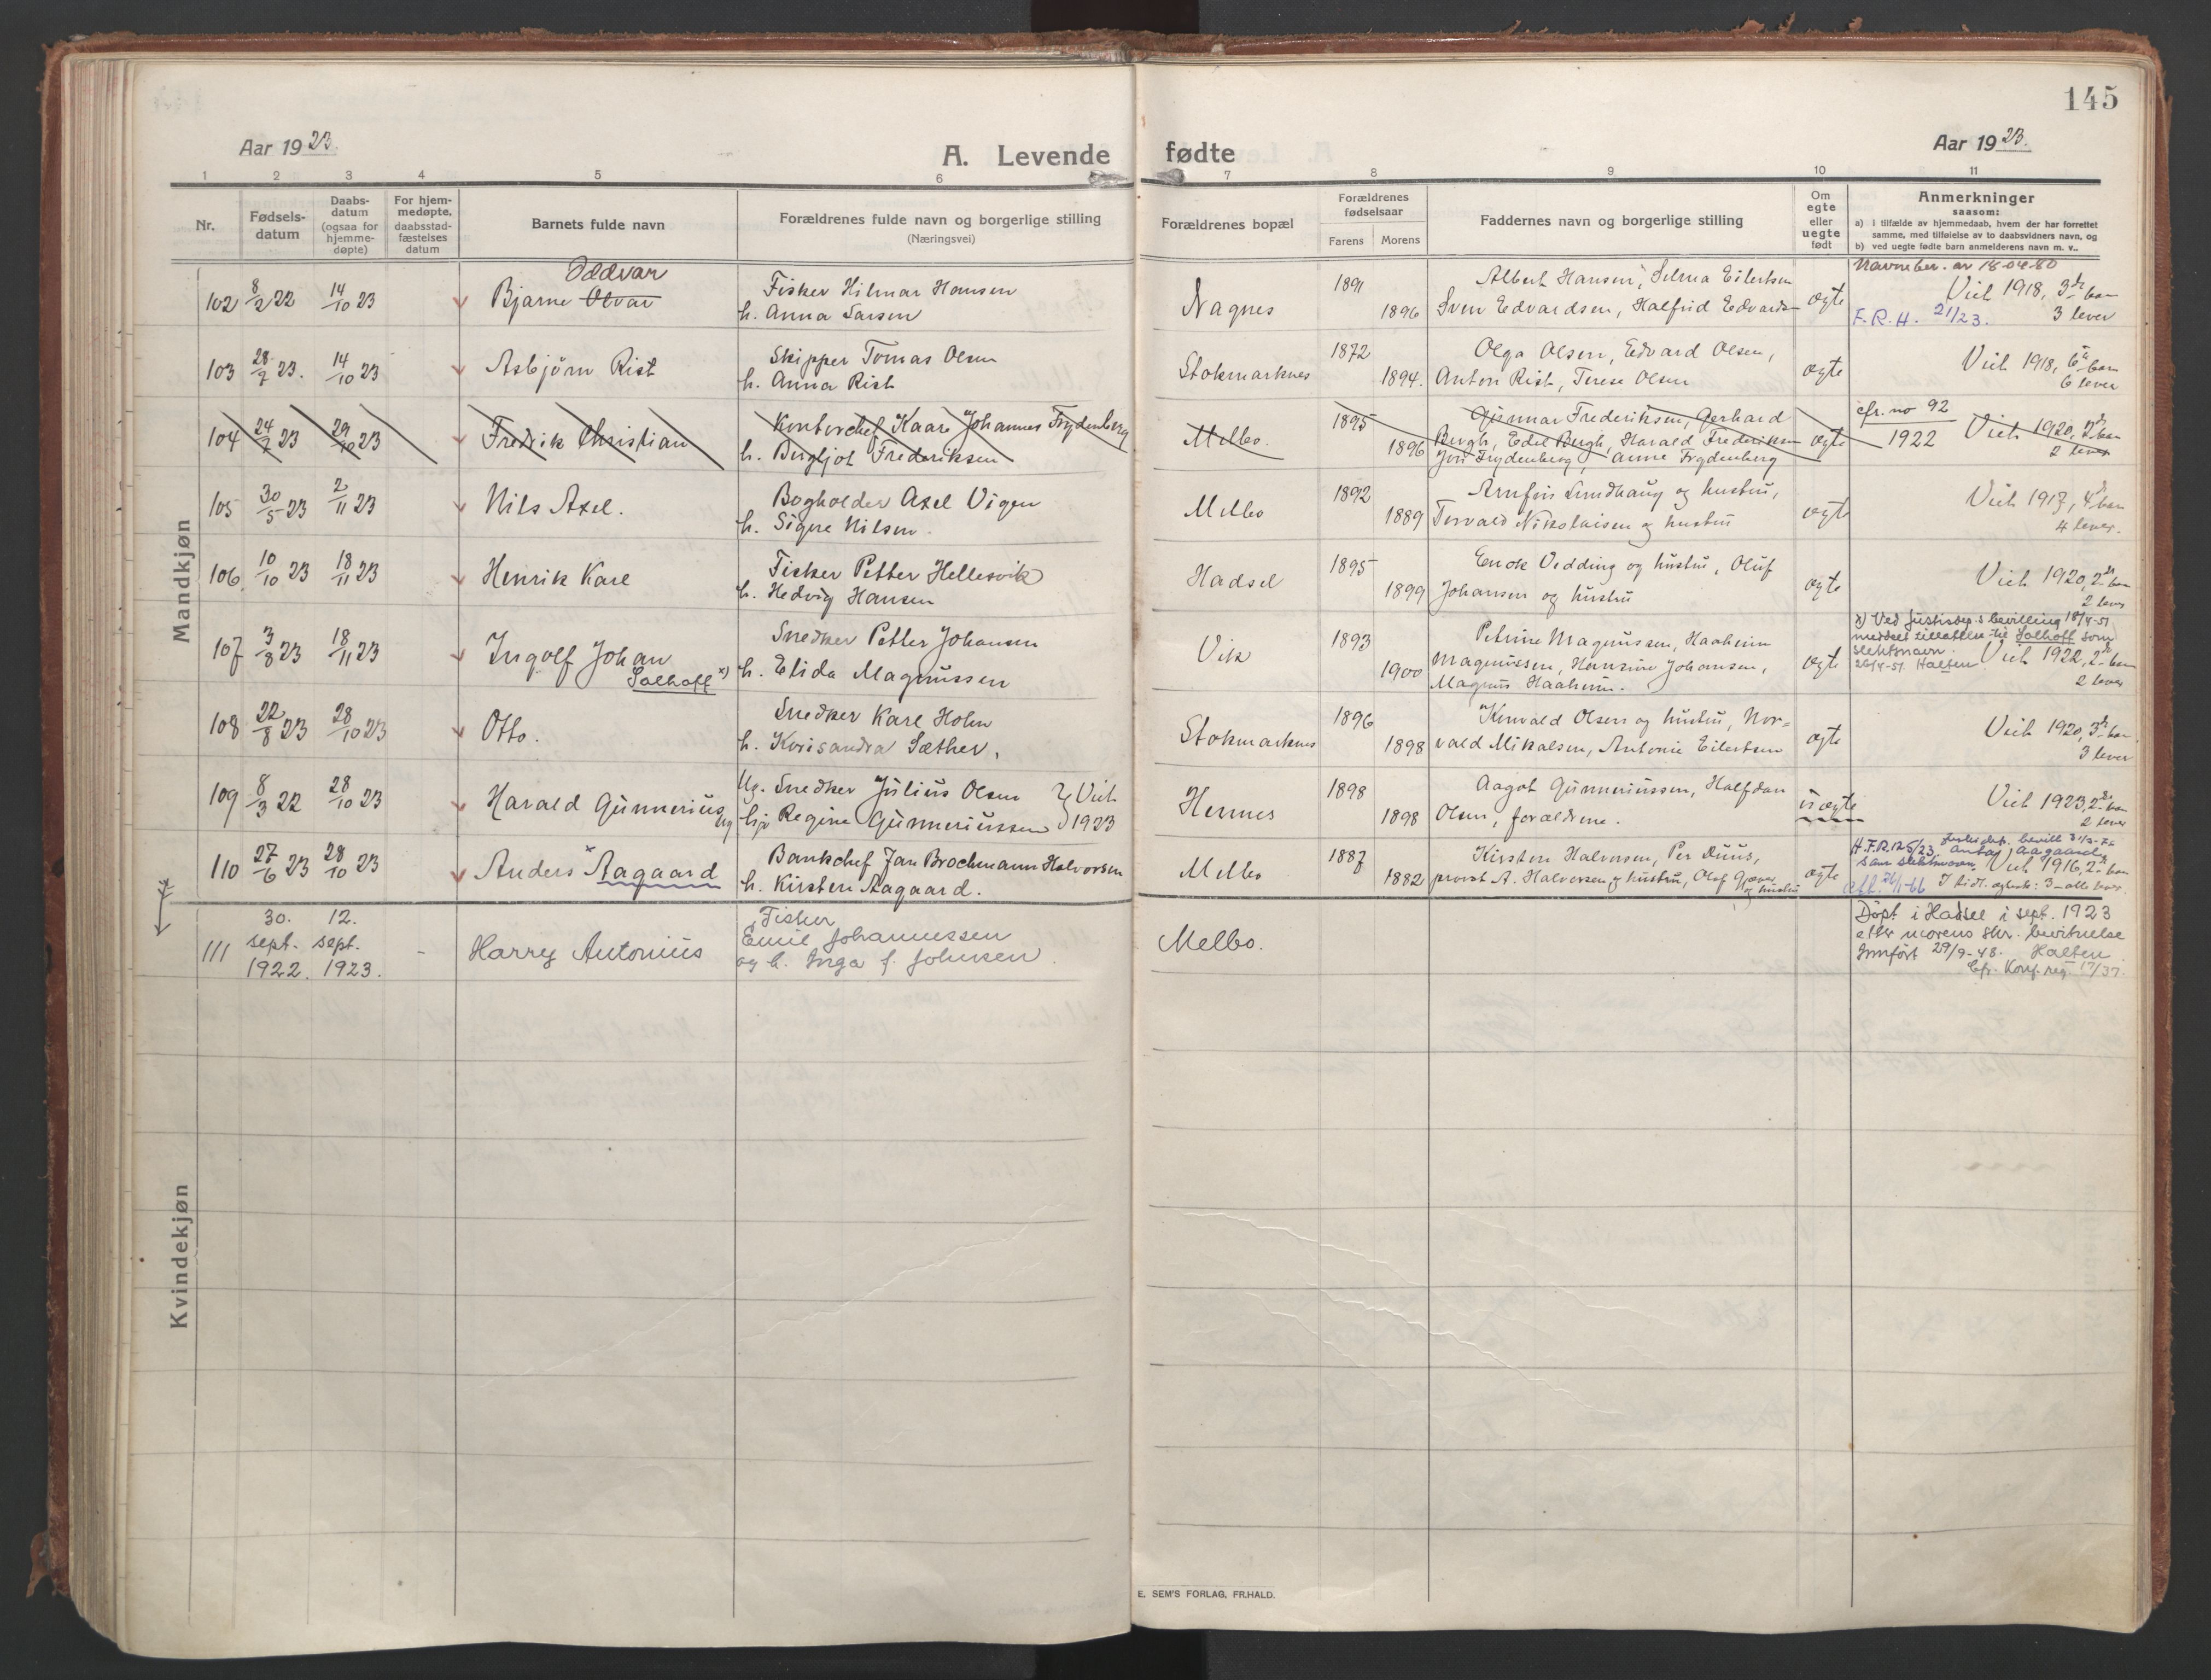 145
Aar 1923.
A. Levende fødte
Aar 1923.
1 2 3 4 5 6 7 8 9 10 11
Nr.
Fødsels-
datum
Daabs-
datum
(ogsaa for
hjemme-
døpte)
For hjem-
medøpte,
daabsstad-
fæstelses
datum
Barnets fulde navn
Forældrenes fulde navn og borgerlige stilling
(Næringsvei)
Forældrenes bopæl
Forældrenes
fødselsaar
Farens Morens
Faddernes navn og borgerlige stilling
Om
egte
eller
uegte
født
Anmerkninger
saasom:
a) i tilfælde av hjemmedaab, hvem der har forrettet
samme, med tilføielse av to daabsvidners navn, og
b) ved uegte fødte barn anmelderens navn m. v..
Mandkjøn
Oddvar
102 8/2 22 14/10 23 Bjarne Olvar
Fisker Hilmar Hansen
h. Anna Larsen
Nagnes 1891 1896
Albert Hansen, Selma Eilertsen
Sven Edvardsen, Halfrid Edvards-
egte
Navneber. av 18-04-80
Viet 1918, 3die barn
F.R.H. 21/23. 3 lever
103 28/7 23. 14/10 23 Asbjørn Rist
Skipper Tomas Olsen
h. Anna Rist
Stokmarknes 1872 1894.
Olga Olsen, Edvard Olsen,
Anton Rist, Terese Olsen
egte
Viet 1918, 6te barn
6 lever
104 24/7 23 29/10 23 Fredrik Christian
Kontorchef Kaare Johannes Frydenberg
h. Bergljot Frederiksen
Melbo. 1895 1896
Gunnar Frederiksen, Gerhard
Bergh, Edel Bergh, Harald Frederiksen
Jon Frydenberg, Anne Frydenberg
egte
cfr. no 92
1922 Viet 1920, 2det barn
2 lever
105 30/5 23 2/11 23 Nils Axel.
Bogholder Axel Vigen
h. Signe Nilsen.
Melbo 1892 1889
Arnfin Sundhaug og hustru,
Torvald Nikolaisen og hustru
egte
Viet 1917, 4de barn
4 lever.
106. 10/10 23 18/11 23 Henrik Karl
Fisker Petter Hellesvik
h. Hedvig Hansen
Hadsel 1895 1899
Enok Vedding og hustru, Oluf
Johansen og hustru
egte
Viet 1920, 2det barn
2 lever
107 3/8 23 18/11 23 Ingolf Johan
Solhoff x)
Snedker Petter Johansen
h. Elida Magnussen
Vik 1893 1900
Petrine Magnussen, Haaheim
Magnussen, Hansine Johansen,
Magnus Haaheim.
egte
x) Ved Justisdep.s bevilling 18/4-51
meddelt tillatelse til Solhoff som
slektsnavn.
26/4-51. Halten Viet 1922, 2det barn
2 lever
108 22/8 23 28/10 23 Otto.
Snedker Karl Holm
h. Korisandra Sæther.
Stokmarknes 1896 1898
Konvald Olsen og hustru, Nor-
vald Mikalsen, Antonie Eilertsen
egte
Viet 1920, 3die barn
3 lever
109 8/3 22 28/10 23 Harald Gunnerius
Ug. Snedker Julius Olsen
Pige Regine Gunneriussen } Viet 1923
Hennes 1898 1898
Aagot Gunneriussen, Halfdan
Olsen, forældrene.
uegte
Viet 1923, 2det barn
2 lever
110 27/6 23 28/10 23 Anders x Aagaard
Bankchef Jan Brochmann Halvorsen
h. Kirsten Aagaard.
Melbo 1887 1882
Kirsten Halvorsen, Per Duus,
provst A. Halvorsen og hustru, Olaf Gjæver
og hustru
egte
H.F.R. 125/23.
antag Aagaard
som slektsnavn Viet 1916, 2det barn
I tidl. ægtesk: 3 - alle lever.
111 30. sept. 1922. 12. sept. 1923. - Harry Antonius
Fisker
Emil Johannessen
og h. Inga f. Johnsen.
Melbo.
Döpt i Hadsel i sept. 1923
etter morens skr. bevitnelse
Innført 29/9-48. Halten
Cfr. Konf.reg. 17/37.
Kvindekjøn
E. SEM'S FORLAG, FR.HALD.